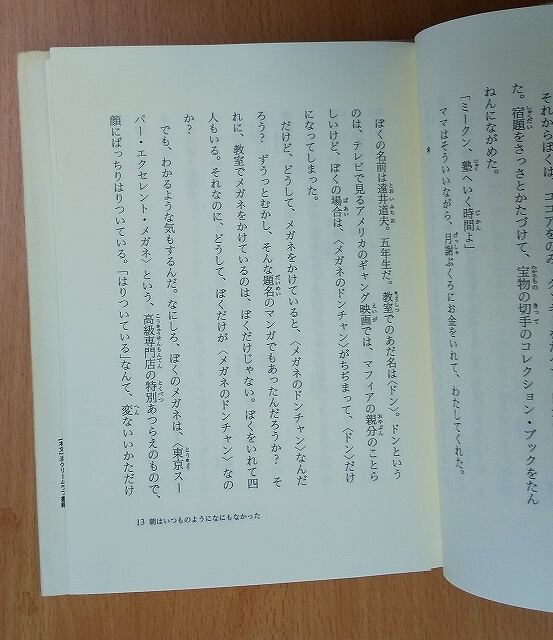 それからぼくは、ココアをのみ、クッキ
た。宿題をさっさとかたづけて、宝物の切手のコレクション・ブックをたん
ねんにながめた。
「ミークン、塾へいく時間よ」
ママはそういいながら、月謝ぶくろにお金をいれて、わたしてくれた。
*
ぼくの名前は遠井道夫。五年生だ。教室でのあだ名は〈ドン〉。ドンという
のは、テレビで見るアメリカのギャング映画では、マフィアの親分のことら
しいけど、ぼくの場合は、〈メガネのドンチャン〉がちぢまって、〈ドン〉だけ
になってしまった。
だけど、どうして、メガネをかけていると、〈メガネのドンチャン〉なんだ
ろう? ずうっとむかし、そんな題名のマンガでもあったんだろうか? そ
れに、教室でメガネをかけているのは、ぼくだけじゃない。ぼくをいれて四
人もいる。それなのに、どうして、ぼくだけが〈メガネのドンチャン〉なの
か?
でも、わかるような気もするんだ。なにしろ、ぼくのメガネは、〈東京スー
パー・エクセレント・メガネ〉という、高級専門店の特別あつらえのもので、
顔にばっちりはりついている。「はりついている」なんて、変ないいかただけ
13 朝はいつものようになにもなかった